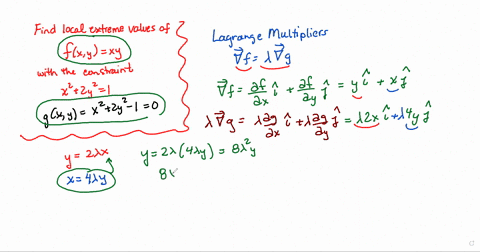 Find local extreme values of
f(x,y) = xy
with the constraint
x² + 2y² = 1
g(x,y) = x² + 2y² - 1 = 0
Lagrange Multipliers
∇⃗f = λ∇⃗g
∇⃗f = ∂f/∂x î + ∂f/∂y ĵ = y î + x ĵ
λ∇⃗g = λ∂g/∂x î + λ∂g/∂y ĵ = λ2x î + λ4y ĵ
y = 2λx
x = 4λy
y = 2λ(4λy) = 8λ²y
8λ